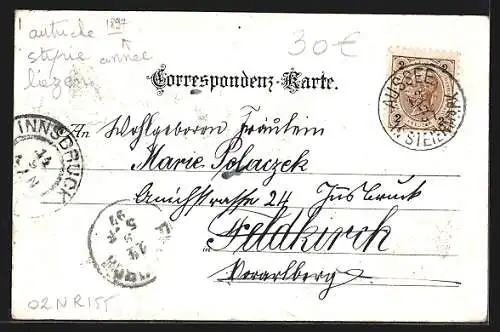 autriche 1897
styrie année
liezen
30€
Correspondenz-Karte.
AUSSEE
STEIERMARK
2 2
INNSBRUCK
An Wohlgeboren Fräulein
Marie Polaczek
Amichstrasse 24 Insbruck
in Feldkirch
Vorarlberg
02NR155